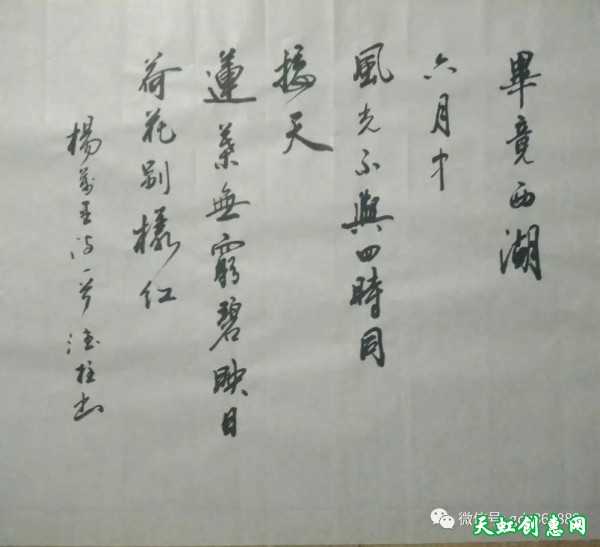 畢竟西湖
六月中
風光不與四時同
接天
蓮葉無窮碧映日
荷花別樣紅
楊萬里詩一首 柱書
微信号
天虹创惠网